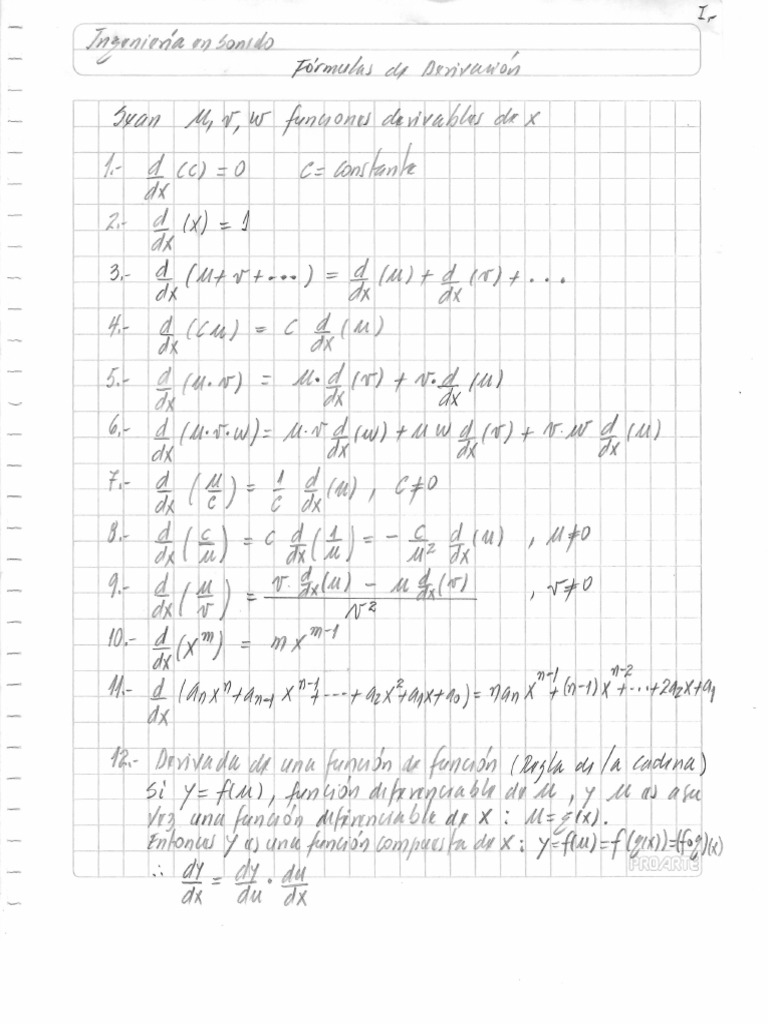 I.-
Ingeniería en Sonido
Fórmulas de Derivación
Sean u, v, w funciones derivables de x
1.- d/dx (c) = 0 C = constante
2.- d/dx (x) = 1
3.- d/dx (u + v + ...) = d/dx (u) + d/dx (v) + ...
4.- d/dx (Cu) = C d/dx (u)
5.- d/dx (u·v) = u· d/dx (v) + v· d/dx (u)
6.- d/dx (u·v·w) = u·v d/dx (w) + u w d/dx (v) + v·w d/dx (u)
7.- d/dx (u/c) = 1/C d/dx (u), C≠0
8.- d/dx (c/u) = C d/dx (1/u) = - c/u² d/dx (u) , u≠0
9.- d/dx (u/v) = (v· d/dx (u) - u d/dx (v)) / v² , v≠0
10.- d/dx (xᵐ) = m xᵐ⁻¹
11.- d/dx (aₙxⁿ + aₙ₋₁ xⁿ⁻¹ + ··· + a₂x² + a₁x + a₀) = naₙ xⁿ⁻¹ + (n-1) xⁿ⁻² + ··· + 2a₂x + a₁
12.- Derivada de una función de función (Regla de la cadena)
Si y = f(u), función diferenciable de u, y u es a su
vez una función diferenciable de x : u = g(x).
Entonces y es una función compuesta de x : y = f(u) = f(g(x)) = (fog)(x)
∴ dy/dx = dy/du · du/dx
PROARTE